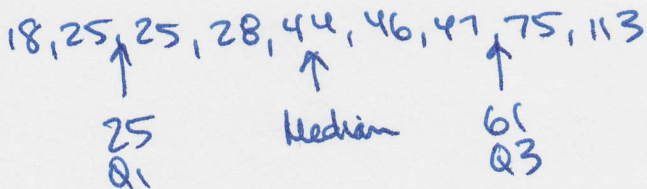 18, 25, 25, 28, 44, 46, 47, 75, 113
25 Median 61
Q1 Q3